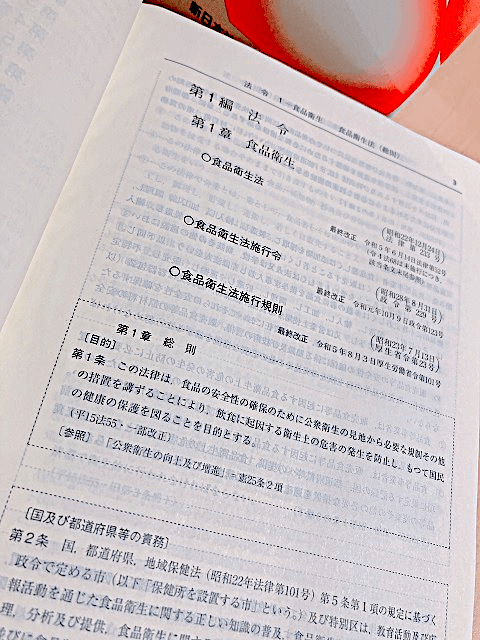 新日本
法 令 1 食品衛生 食品衛生法(総則)
3
第1編 法 令
第1章 食品衛生
○食品衛生法
(昭和22年12月24日
法 律 第 233 号)
最終改正 令和5年6月14日法律第52号
(令4法68は未施行につき、
該当条文末尾参照)
○食品衛生法施行令
(昭和28年8月31日
政 令 第 229 号)
最終改正 令和元年10月9日政令第123号
○食品衛生法施行規則
(昭和23年7月13日
厚生省令第23号)
最終改正 令和5年8月3日厚生労働省令第101号
第1章 総 則
〔目的〕
第1条 この法律は、食品の安全性の確保のために公衆衛生の見地から必要な規制その他
の措置を講ずることにより、飲食に起因する衛生上の危害の発生を防止し、もつて国民
の健康の保護を図ることを目的とする。
(平15法55・一部改正)
〔参照〕 「公衆衛生の向上及び増進」=憲25条2項
〔国及び都道府県等の責務〕
第2条 国、都道府県、地域保健法(昭和22年法律第101号)第5条第1項の規定に基づく
政令で定める市(以下「保健所を設置する市」という。)及び特別区は、教育活動及び広
報活動を通じた食品衛生に関する正しい知識の普及、食品衛生
理、分析及び提供、食品衛生に関する